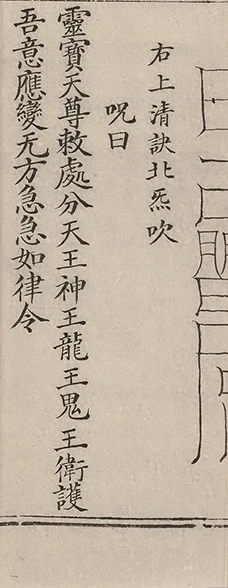 右上清訣北炁吹
呪曰
靈寶天尊敕處分天王神王龍王鬼王衛護
吾意應變无方急急如律令